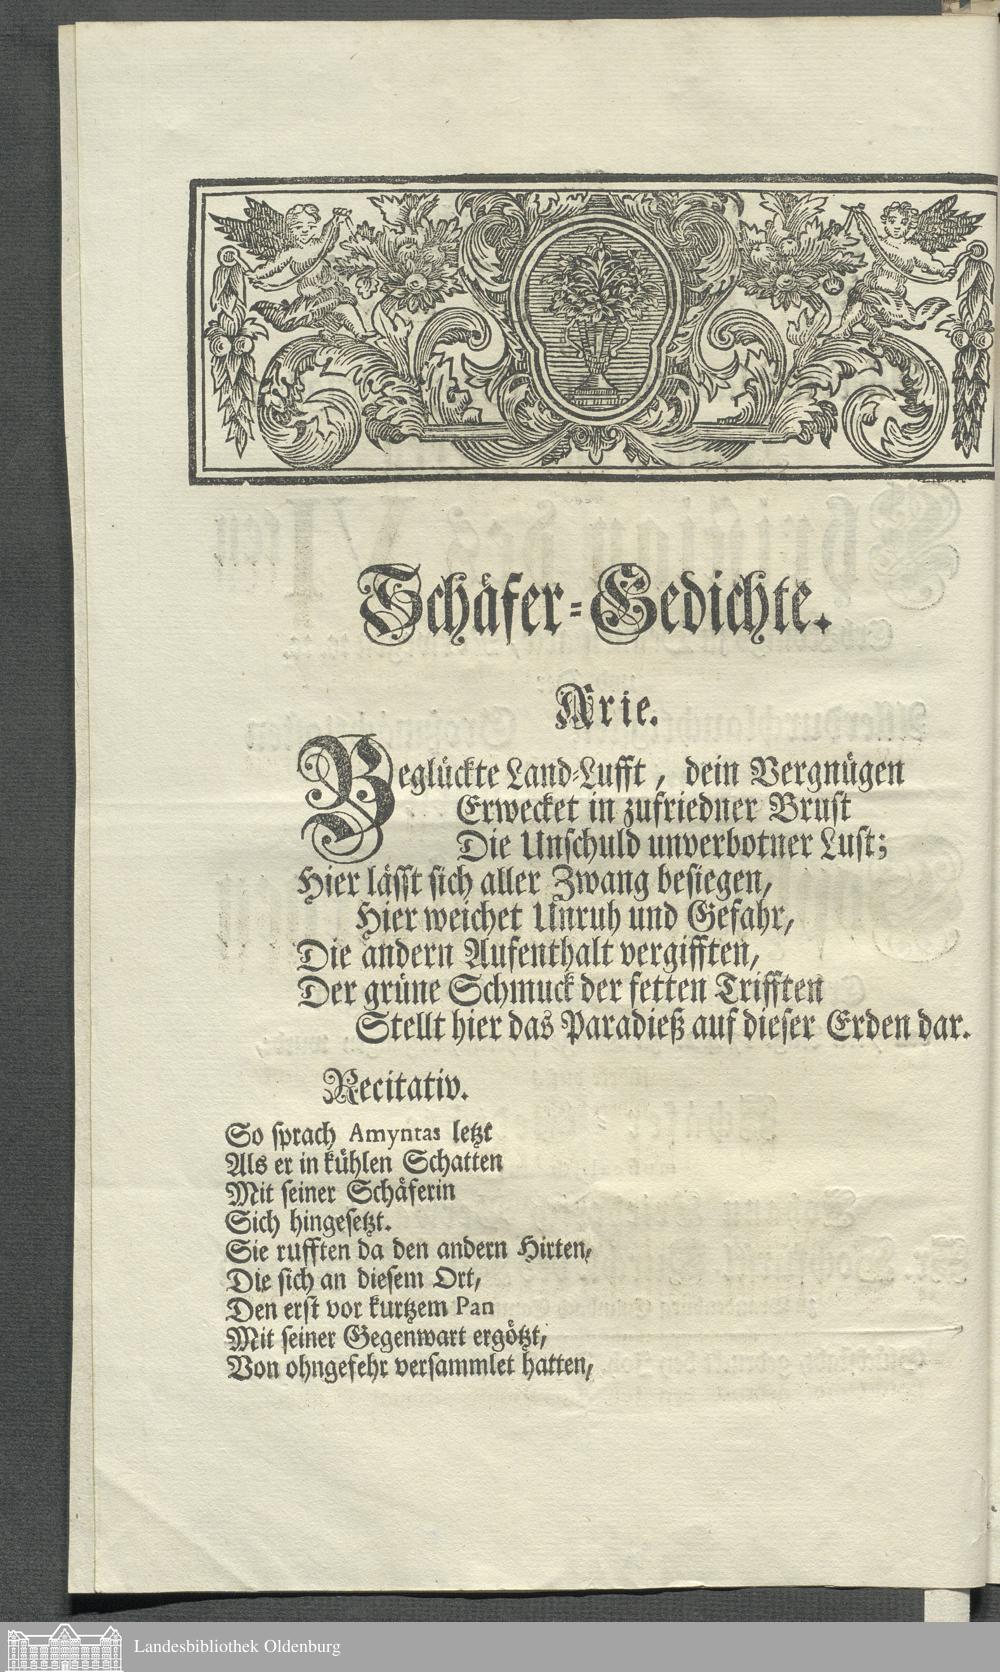 Schäfer-Gedichte.
Arie.
Beglückte Land-Lufft, dein Vergnügen
Erwecket in zufriedner Brust
Die Unschuld unverbotner Lust;
Hier lässt sich aller Zwang besiegen,
Hier weichet Unruh und Gefahr,
Die andern Aufenthalt vergifften,
Der grüne Schmuck der fetten Trifften
Stellt hier das Paradieß auf dieser Erden dar.
Recitativ.
So sprach Amyntas letzt
Als er in kühlen Schatten
Mit seiner Schäferin
Sich hingesetzt.
Sie rufften da den andern Hirten,
Die sich an diesem Ort,
Den erst vor kurtzem Pan
Mit seiner Gegenwart ergötzt,
Von ohngefehr versammlet hatten,
Landesbibliothek Oldenburg